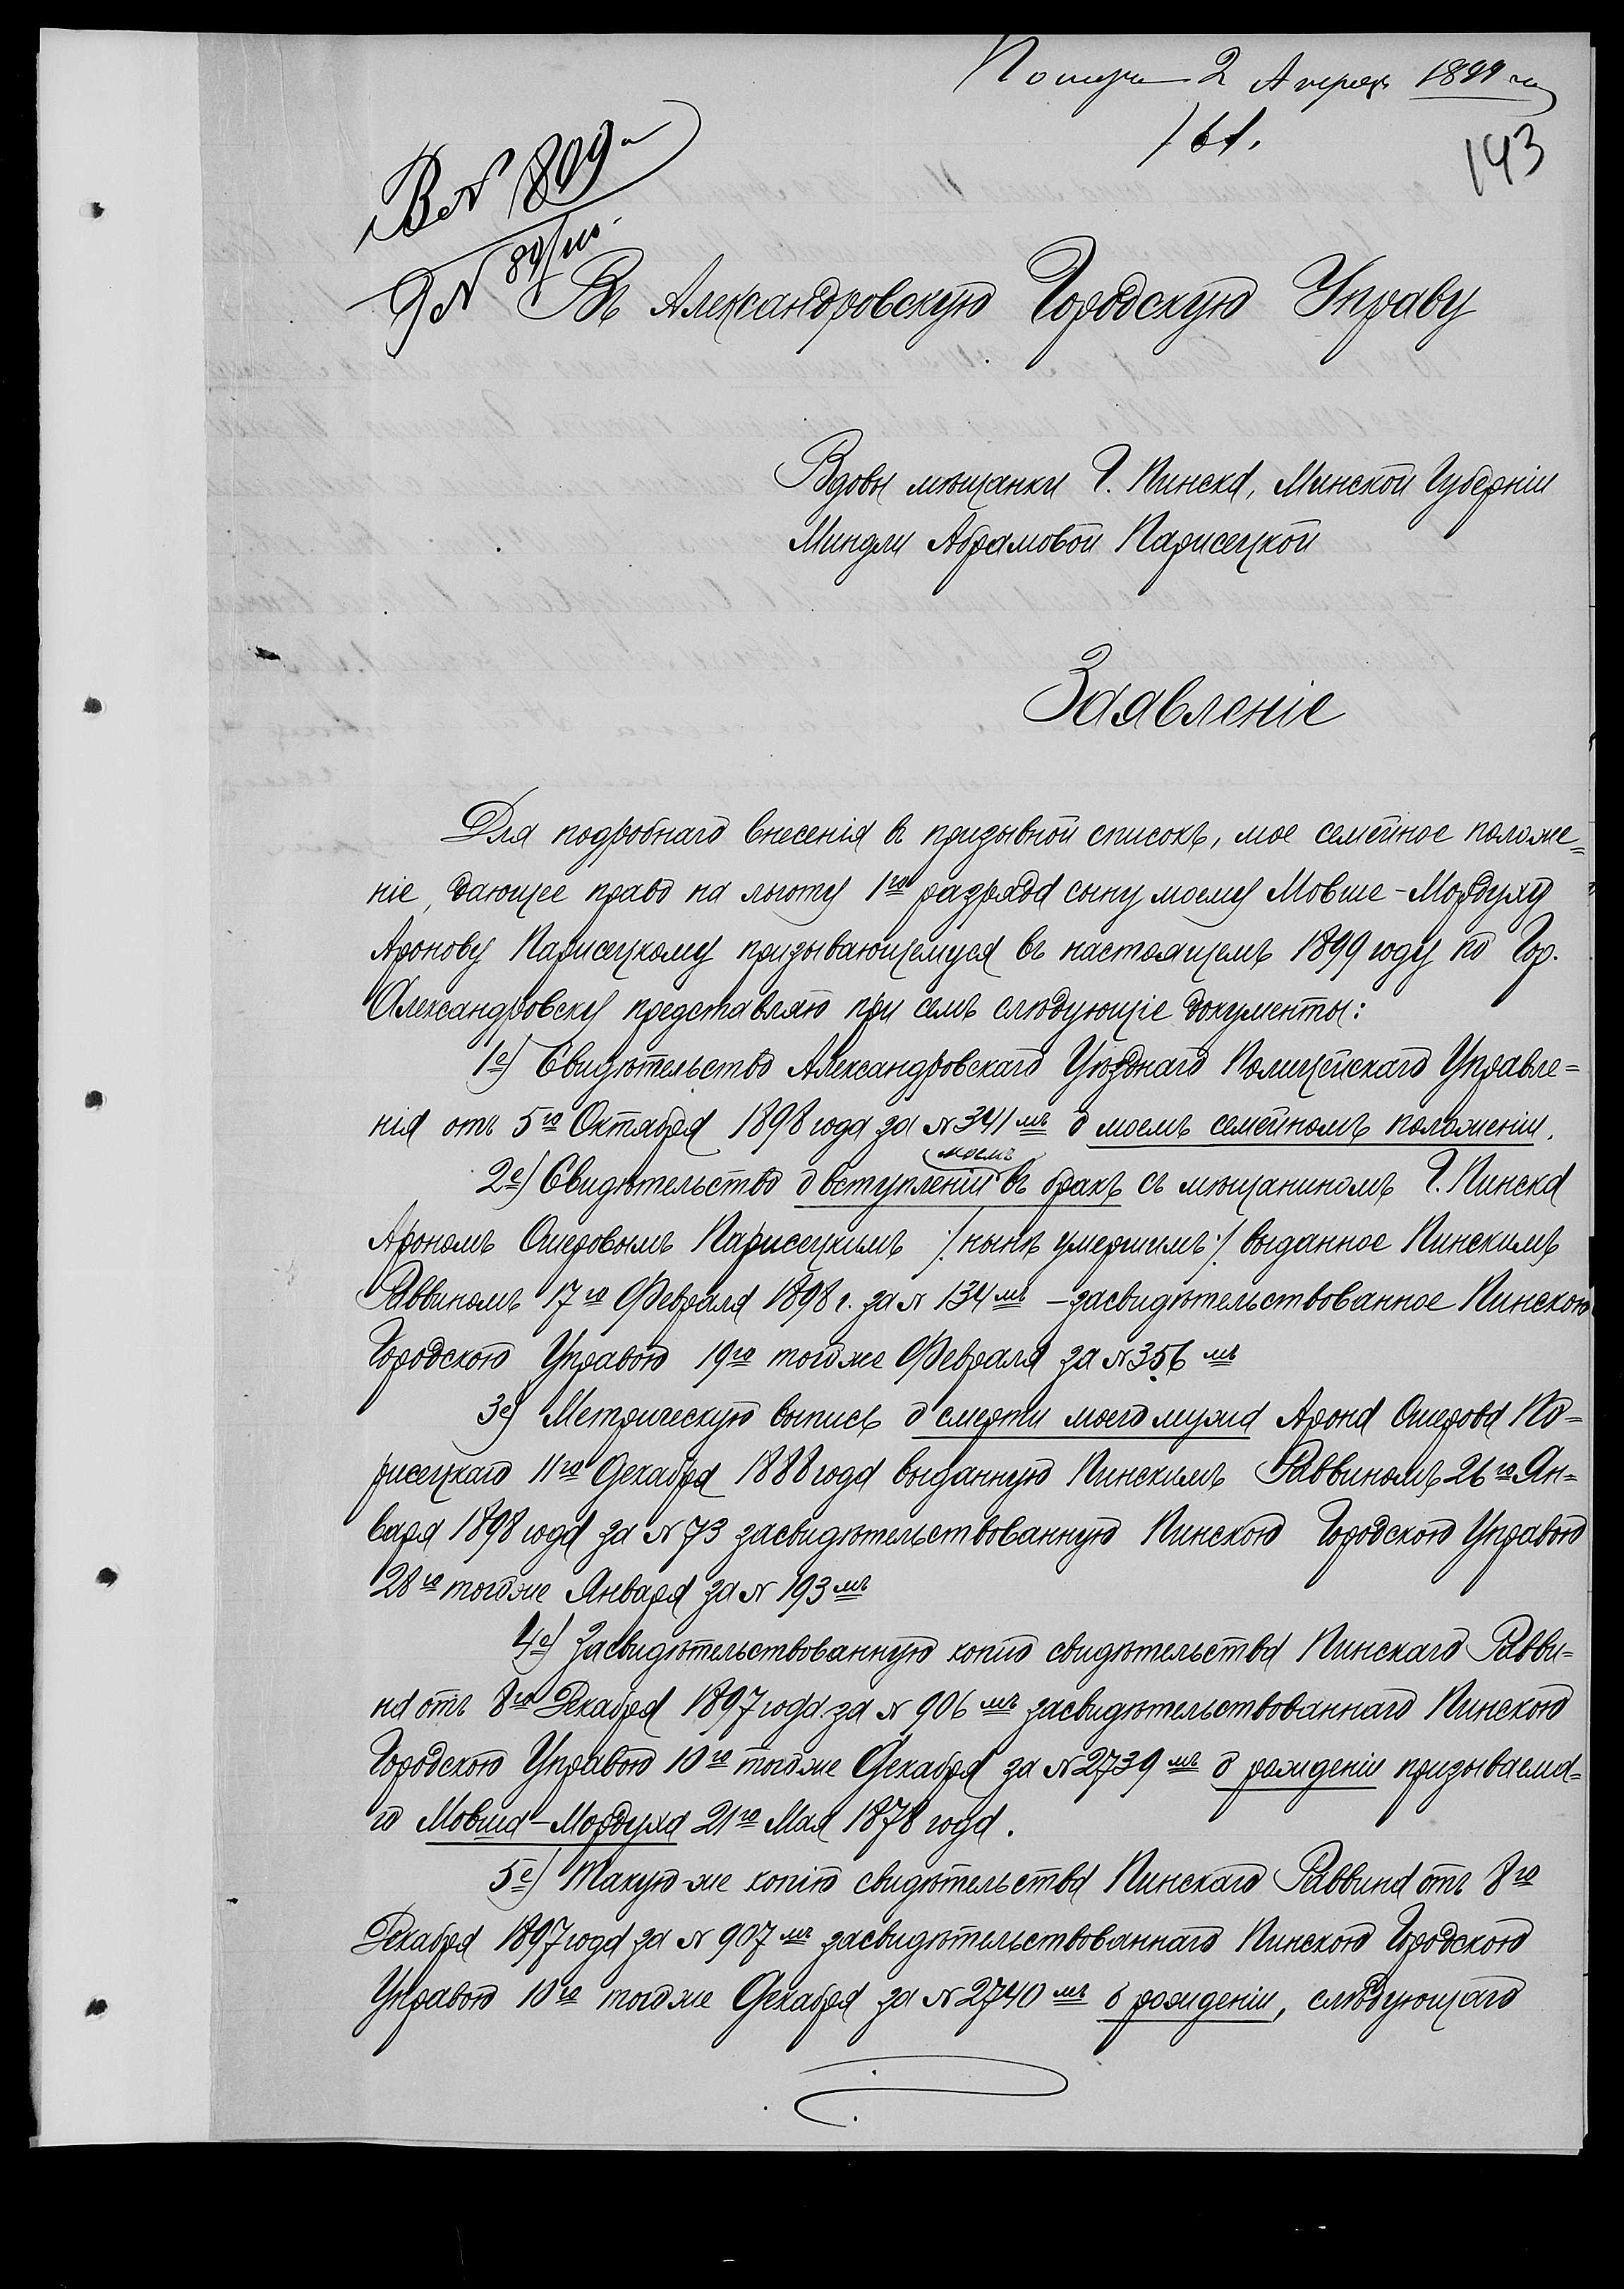 2 Апрѣля 1899 г.
161.
143
В № 809
Д № 89/
Въ Александровскую Городскую Управу
Вдовы мѣщанки Г. Пинска, Минской Губерніи
Миндли Абрамовой Парисецкой
Заявленіе
Для подробнаго внесенія въ призывной списокъ, мое семейное положе=
ніе, дающее право на льготу 1го разряда сыну моему Мовше-Мордуху
Аронову Парисецкому призывающемуся въ настоящемъ 1899 году по Гор.
Александровску представляю при семъ слѣдующіе документы:
1е) Свидѣтельство Александровскаго Уѣзднаго Полицейскаго Управле=
нія отъ 5го Октября 1898 года за № 341мъ о моемъ семейномъ положеніи.
моемъ
2е) Свидѣтельство о вступленіи въ бракъ съ мѣщаниномъ Г. Пинска
Арономъ Ошеровымъ Парисецкимъ /нынѣ умершимъ/ выданное Пинскимъ
Раввиномъ 17го Февраля 1898 г. за № 134мъ – засвидѣтельствованное Пинскою
Городскою Управою 19го тогоже Февраля за № 356мъ
3е) Метрическую выпись о смерти моего мужа Арона Ошерова Па=
рисецкаго 11го Декабря 1888 года выданную Пинскимъ Раввиномъ 26го Ян=
варя 1898 года за № 73 засвидѣтельствованную Пинскою Городскою Управою
28го тогоже Января за № 193мъ
4е) Засвидѣтельствованную копію свидѣтельства Пинскаго Равви=
на отъ 8го Декабря 1897 года за № 906мъ засвидѣтельствованнаго Пинскою
Городскою Управою 10го тогоже Декабря за № 2739мъ о рожденіи призываема=
го Мовша-Мордуха 21го Мая 1878 года.
5е) Такую-же копію свидѣтельства Пинскаго Раввина отъ 8го
Декабря 1897 года за № 907мъ засвидѣтельствованнаго Пинскою Городскою
Управою 10го тогоже Декабря за № 2740мъ о рожденіи, слѣдующаго